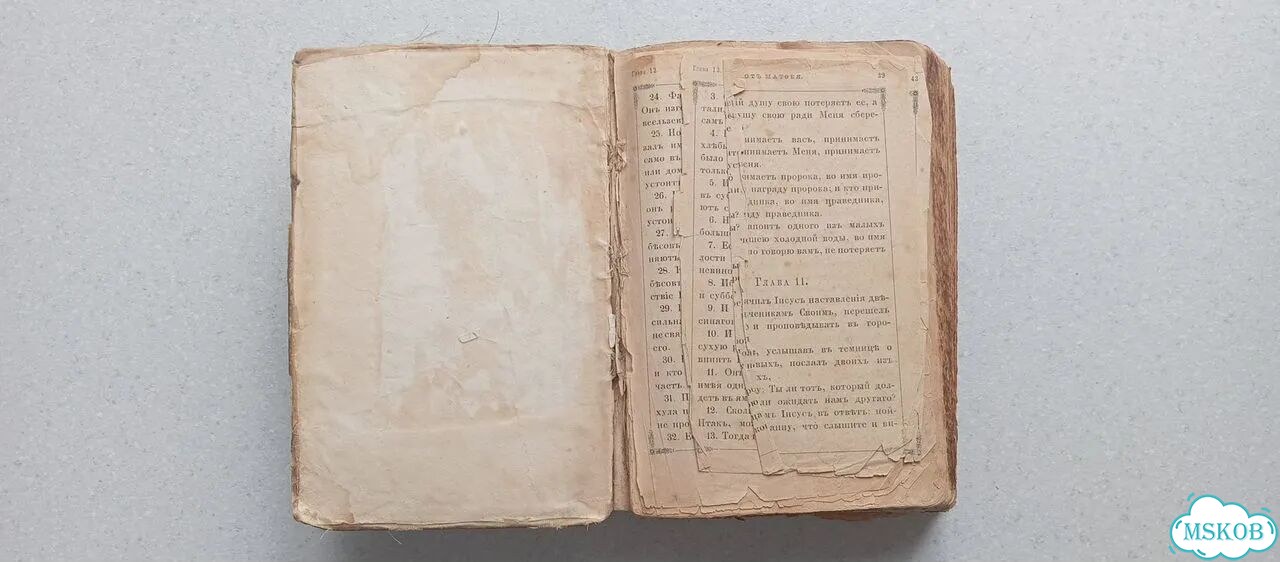 Глава 12.
24. Фа
Онъ изг
веельзев
25. Но
залъ им
само въ
или дом
устоитъ
26.
онъ
устои
27.
бѣсовъ
няютъ
28.
бѣсовъ
ствіе
29.
сильна
не свя
его.
30.
и кто
часть
31. П
хула
не про
32.
Глава 12.
3.
тали
самъ
4.
хлѣбы
было
только
5. И
въ су
ютъ с
6. Н
больш
7. Ес
лости
невинн
8. И
и суббо
9. И
синагог
10. И
сухую
винить
11. Онъ
имѣя одн
детъ въ ям
12. Скол
Итакъ, мо
13. Тогда
ОТЪ МАТѲЕЯ.
39
43
душу свою потеряетъ ее, а
душу свою ради Меня сбере-
нимаетъ васъ, принимаетъ
инимаетъ Меня, принимаетъ
меня.
имаетъ пророка, во имя про-
награду пророка; и кто при-
дника, во имя праведника,
ду праведника.
апоитъ одного изъ малыхъ
чашею холодной воды, во имя
но говорю вамъ, не потеряетъ
ГЛАВА 11.
нчилъ Іисусъ наставленія двѣ-
ученикамъ Своимъ, перешелъ
и проповѣдывать въ горо-
услышавъ въ темницѣ о
выхъ, послалъ двоихъ изъ
хъ,
Ты ли тотъ, который дол-
ли ожидать намъ другаго?
Іисусъ въ отвѣтъ: пой-
оанну, что слышите и ви-
MSKOB